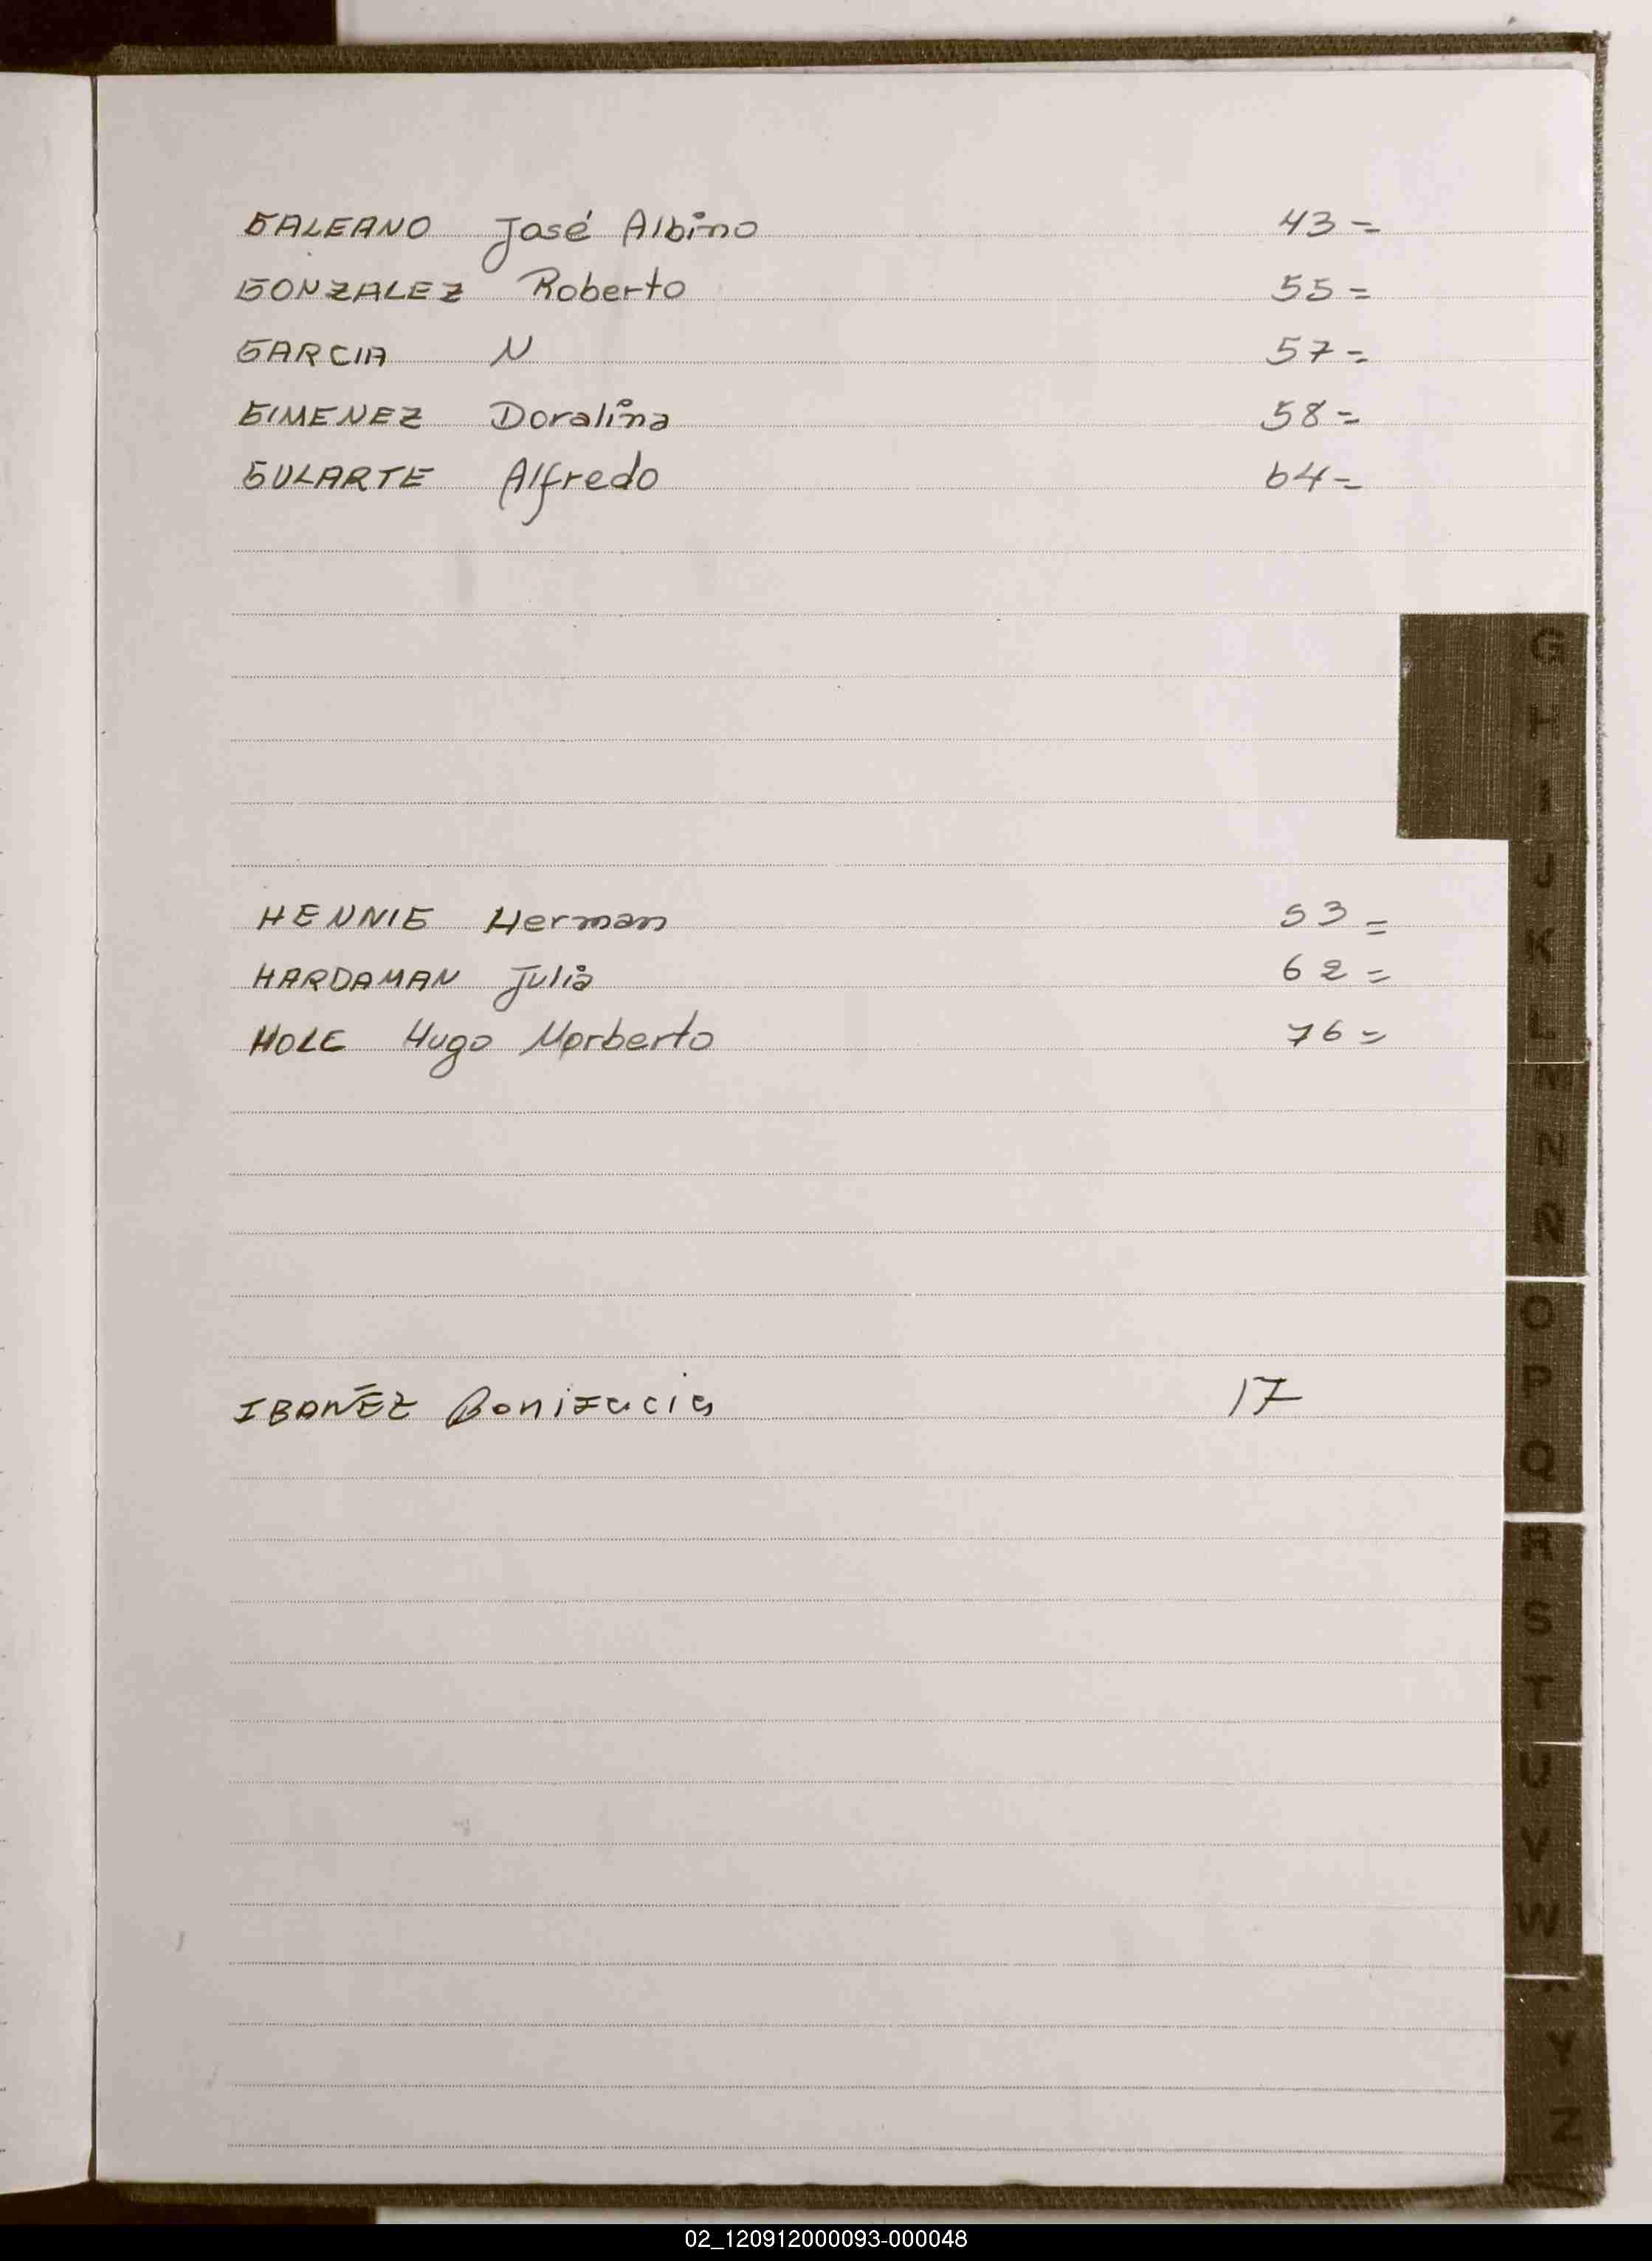 GALEANO José Albino 43=
GONZALEZ Roberto 55=
GARCIA N 57=
GIMENEZ Doralina 58=
GULARTE Alfredo 64=
G
H
I
J
K
L
HENNIE Herman 53=
HARDAMAN Julia 62=
HOLE Hugo Norberto 76=
M
N
Ñ
O
P
Q
IBAÑEZ Bonifacia 17
R
S
T
U
V
W
X
Y
Z
02_120912000093-000048